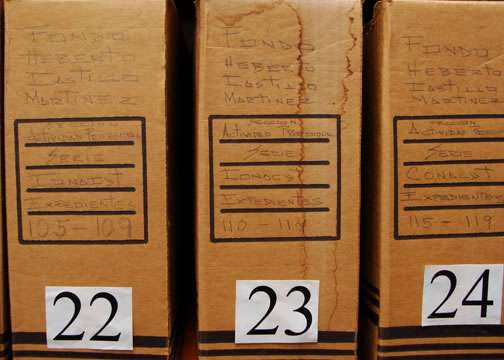 FONDO
HEBERTO
CASTILLO
MARTINEZ
SECCION
ACTIVIDAD PROFESIONAL
SERIE
CONACYT
EXPEDIENTES
105-109
22
FONDO
HEBERTO
CASTILLO
MARTINEZ
SECCION
ACTIVIDAD PROFESIONAL
SERIE
CONACYT
EXPEDIENTES
110-114
23
FONDO
HEBERTO
CASTILLO
MARTINEZ
SECCION
ACTIVIDAD
SERIE
CONACYT
EXPEDIENTES
115-119
24